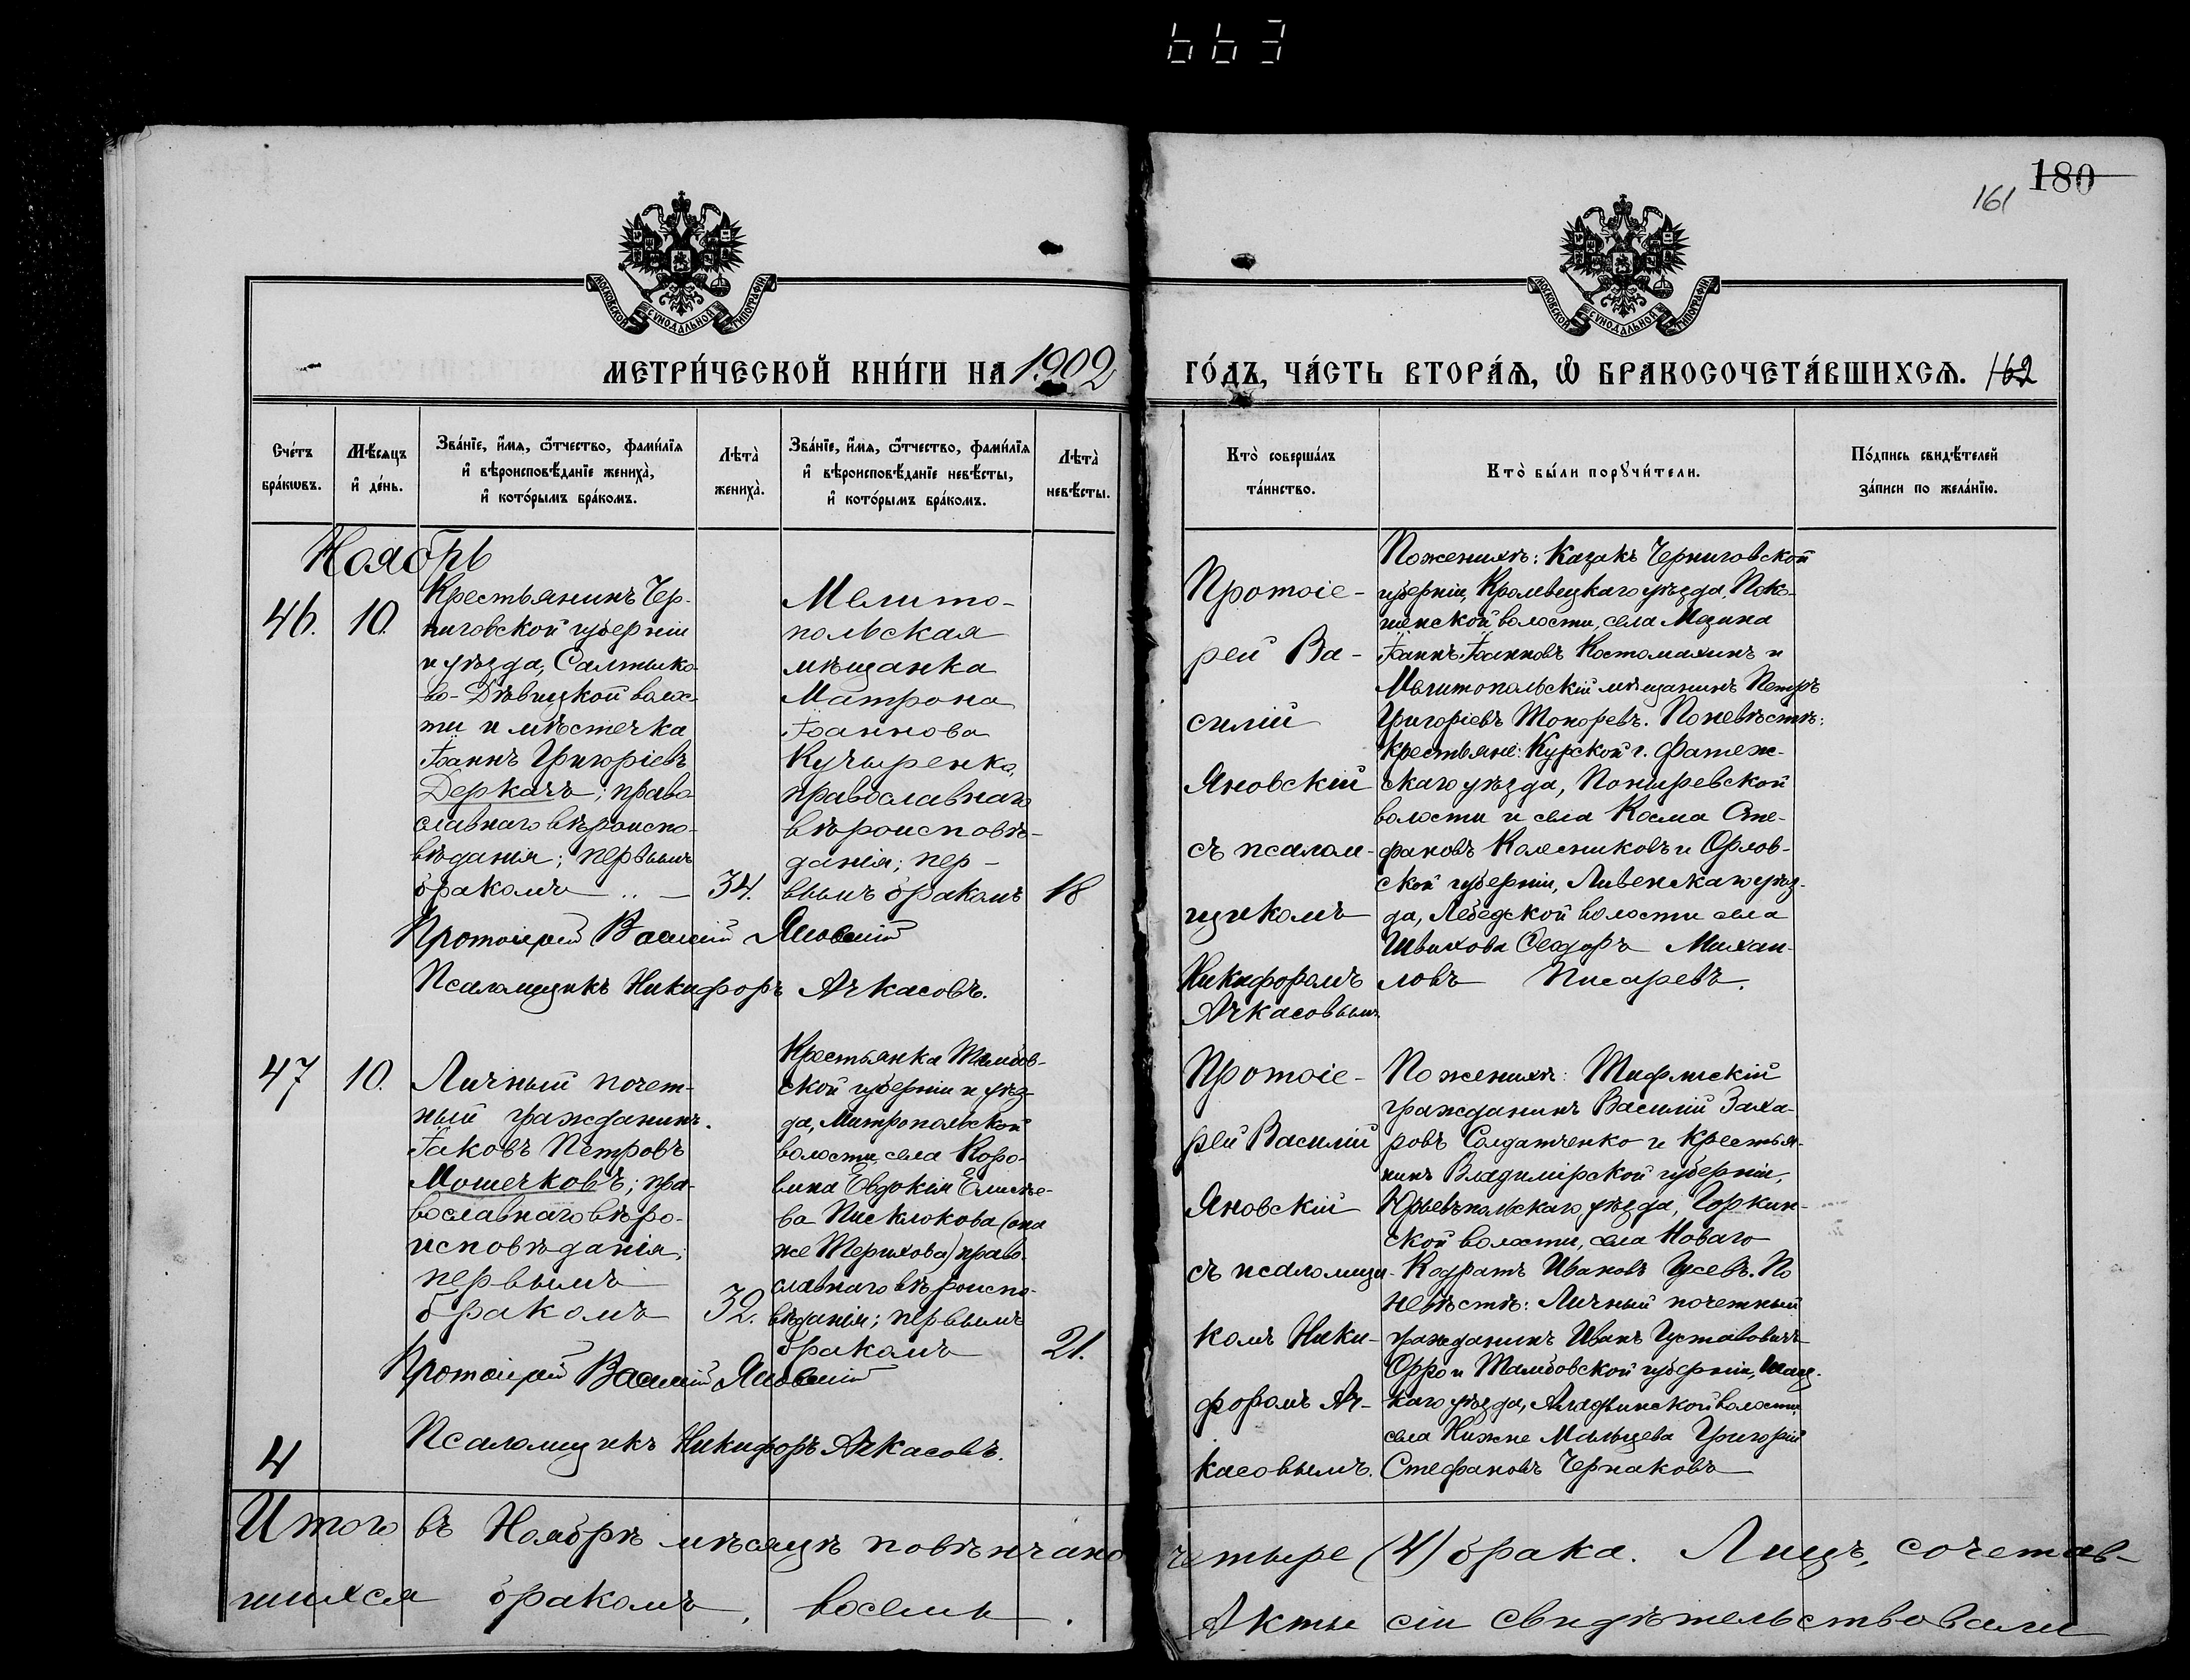 663
180
161
МОСКОВСКОЙ СУНОДАЛЬНОЙ ТИПОГРАФІИ
МОСКОВСКОЙ СУНОДАЛЬНОЙ ТИПОГРАФІИ
МЕТРИ́ЧЕСКОЙ КНИ́ГИ НА 1902
ГО́ДЪ, ЧА́СТЬ ВТОРА́Ѧ, Ѽ БРАКОСОЧЕТА́ВШИХСѦ. 162
Сче́тъ
бра́кѡвъ.
Мѣ́сѧцъ
и҆ де́нь.
Зва́нїе, и҆́мѧ, ѻ҆́тчество, фами́лїѧ
и҆ вѣроисповѣ́данїе жениха̀,
и҆ кото́рымъ бра́комъ.
Лѣта̀
жениха̀.
Зва́нїе, и҆́мѧ, ѻ҆́тчество, фами́лїѧ
и҆ вѣроисповѣ́данїе невѣ́сты,
и҆ кото́рымъ бра́комъ.
Лѣта̀
невѣ́сты.
Кто̀ соверша́лъ
та́инство.
Кто̀ бы́ли порꙋчи́тели.
По́дпись свидѣ́телей
за́писи по жела́нїю.
Ноябрь
46.
10.
Крестьянинъ Чер-
ниговской губерніи
и уѣзда, Салтыко-
во-Дѣвицкой волос-
ти и мѣстечка
Іоаннъ Григоріевъ
Деркачъ; право
славнаго вѣроиспо-
вѣданія; первымъ
бракомъ
34.
Мелито-
польская
мѣщанка
Матрона
Іоаннова
Кучыренко,
православнаго
вѣроисповѣ-
данія; пер-
вымъ бракомъ
18
Протоіе-
рей Ва-
силій
Яновскій
съ псалом-
щикомъ
Никифоромъ
Ачкасовымъ.
По женихѣ: Казакъ Черниговской
губерніи, Кролевецкаго уѣзда, Поко-
шенской волости, села Мезина
Іоаннъ Іоанновъ Костомахинъ и
Мелитопольскій мѣщанинъ Петръ
Григоріевъ Токоревъ. По невѣстѣ:
крестьяне: Курской г. Фатеж-
скаго уѣзда, Поныревской
волости и села Косма Сте-
фановъ Колесниковъ и Орлов-
ской губерніи, Ливенскаго уѣз-
да, Лебедской волости села
Швыхова Ѳеодоръ Михаи-
ловъ Писаревъ.
Протоіерей Василій Яновскій
Псаломщикъ Никифоръ Ачкасовъ.
47
10.
Личный почет-
ный гражданинъ.
Іаковъ Петровъ
Мошечковъ; пра-
вославнаго вѣро-
исповѣданія;
первымъ
бракомъ
32.
Крестьянка Тамбов-
ской губерніи и уѣз-
да, Митропольской
волости, села Коро-
вина Евдокія Елисѣе-
ва Писклокова (она
же Терихова) право-
славнаго вѣроиспо-
вѣданія; первымъ
бракомъ
21.
Протоіе-
рей Василій
Яновскій
съ псаломщи-
комъ Ники-
форомъ Ач-
касовымъ.
По женихѣ: Тифлискій
гражданинъ Василій Заха-
ровъ Солдатченко и крестья-
нинъ Владимірской губерніи,
Юрьевъпольскаго уѣзда, Горкин-
ской волости, села Новаго
Кодратъ Ивановъ Гусевъ. По
невѣстѣ: Личный почетный
гражданинъ Иванъ Густавовичъ
Орро и Тамбовской губерніи, Шац-
каго уѣзда, Аладьинской волости,
села Нижне Мальцева Григорій
Стефановъ Чернаковъ
Протоіерей Василій Яновскій
Псаломщикъ Никифоръ Ачкасовъ.
4
Итого въ Ноябрѣ мѣсяцѣ повѣнчано четыре (4) брака. Лицъ, сочетав-
шихся бракомъ, восемь.
Акты сіи свидѣтельствовали